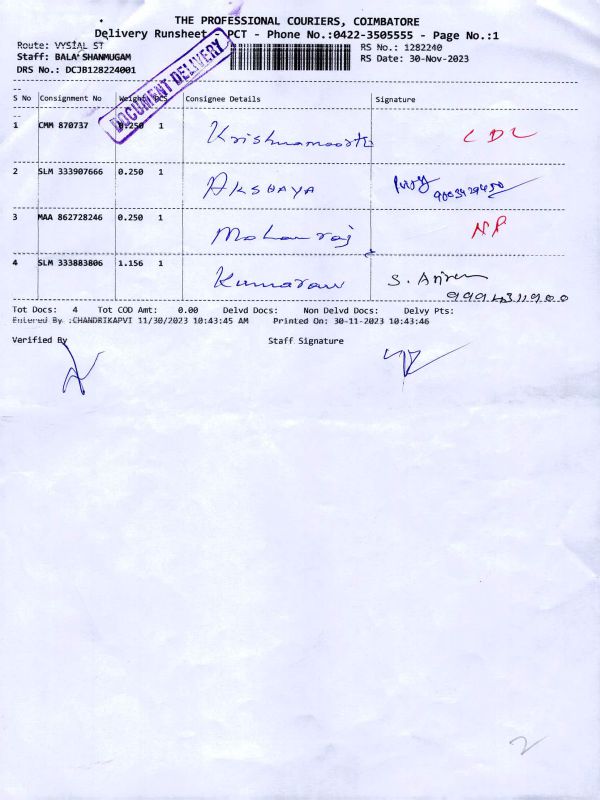 THE PROFESSIONAL COURIERS, COIMBATORE
Delivery Runsheet PCT - Phone No.:0422-3505555 - Page No.:1
Route: VYSIAL ST
RS No.: 1282240
Staff: BALA SHANMUGAM
RS Date: 30-Nov-2023
DRS No.: DCJB128224001
DOCUMENT DELIVERY
S No Consignment No Weight PCS Consignee Details Signature
1 CMM 870737 0.250 1 Krishnamoorthi CDL
2 SLM 333907666 0.250 1 AKSHAYA
3 MAA 862728246 0.250 1 Mohanraj NP
4 SLM 333883806 1.156 1 Kumaran S.
Tot Docs: 4 Tot COD Amt: 0.00 Delvd Docs: Non Delvd Docs: Delvy Pts:
Entered By :CHANDRIKAPVI 11/30/2023 10:43:45 AM Printed On: 30-11-2023 10:43:46
Verified By Staff Signature
2